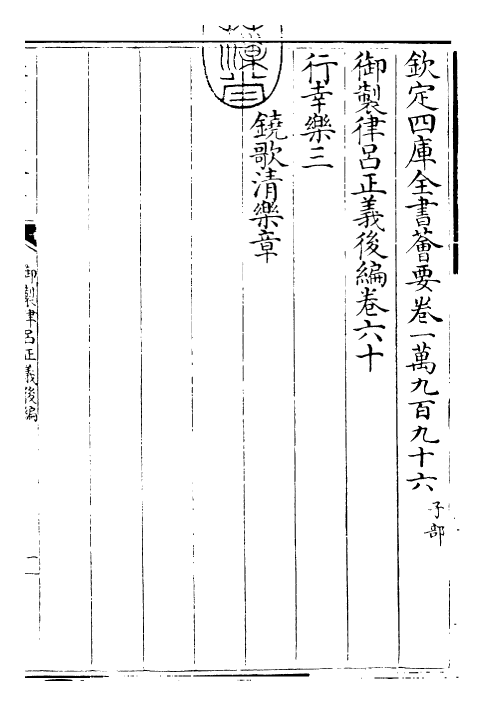 欽定四庫全書薈要卷一萬九百九十六 子部
御製律呂正義後編卷六十
行幸樂三
鐃歌清樂章
御製律呂正義後編
一